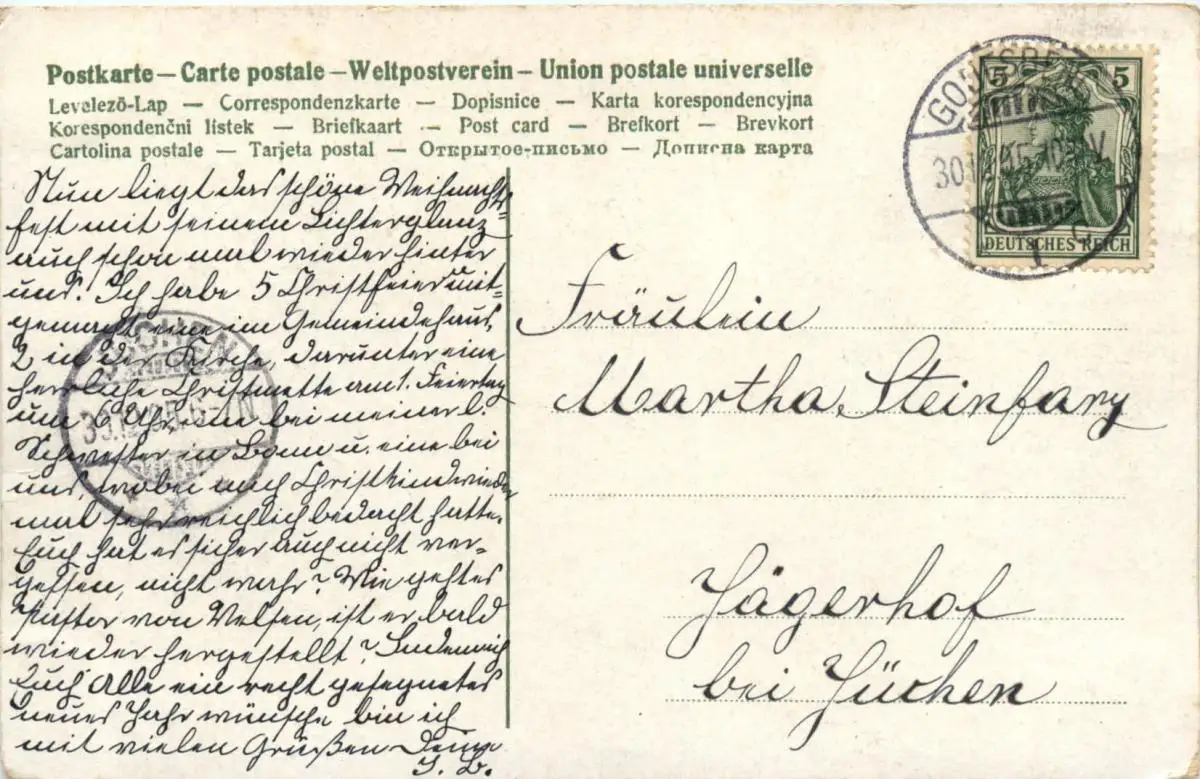 Postkarte — Carte postale — Weltpostverein — Union postale universelle
Levelező-Lap — Correspondenzkarte — Dopisnice — Karta korespondencyjna
Korespondenčni listek — Briefkaart — Post card — Brefkort — Brevkort
Cartolina postale — Tarjeta postal — Открытое-письмо — Дописна карта
Nun liegt das schöne Weihnachts=
fest mit seinem Lichterglanz
auch schon mal wieder hinter
uns. Ich habe 5 Christfeiern mit=
gemacht, eine im Gemeindehaus,
2 in der Kirche, darunter eine
herrliche Christmette am 1. Feiertag
um 6 Uhr, eine bei meiner l.
Schwester in Bonn u. eine bei
uns, wobei mich Christkind wieder
mal sehr reichlich bedacht hatte.
Euch hat es sicher auch nicht ver=
gessen, nicht wahr? Wie geht es
Pastor von Velsen, ist er bald
wieder hergestellt? Indem ich
Euch Alle ein recht gesegnetes
neues Jahr wünsche bin ich
mit vielen Grüßen Deine
J. B.
5 5
DEUTSCHES REICH
GODESBERG
30.12.05.10-11V
1 c
JÜCHEN
30.12.05
Fräulein
Martha Steinfary
Jägerhof
bei Jüchen